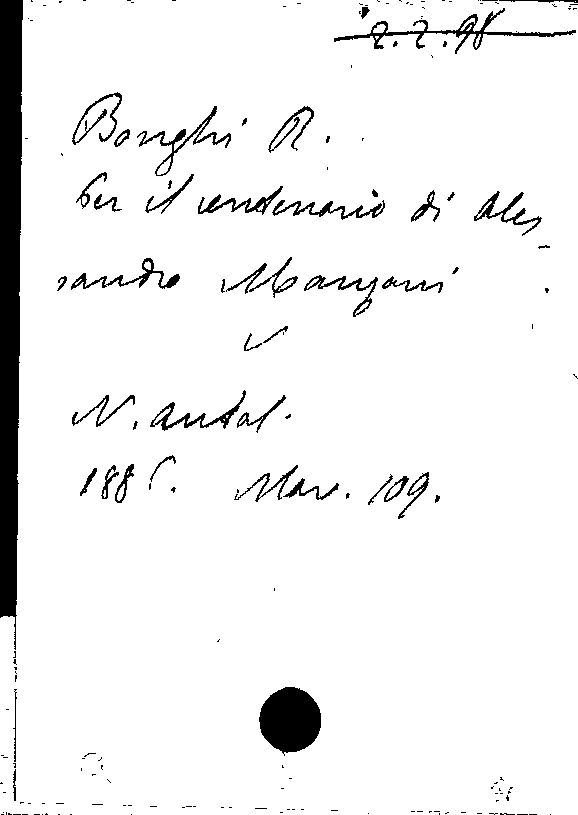 2.2.98
Bonghi R.
Per il centenario di Ales-
sandro Manzoni
N. Antol.
1885. Mar. 109.